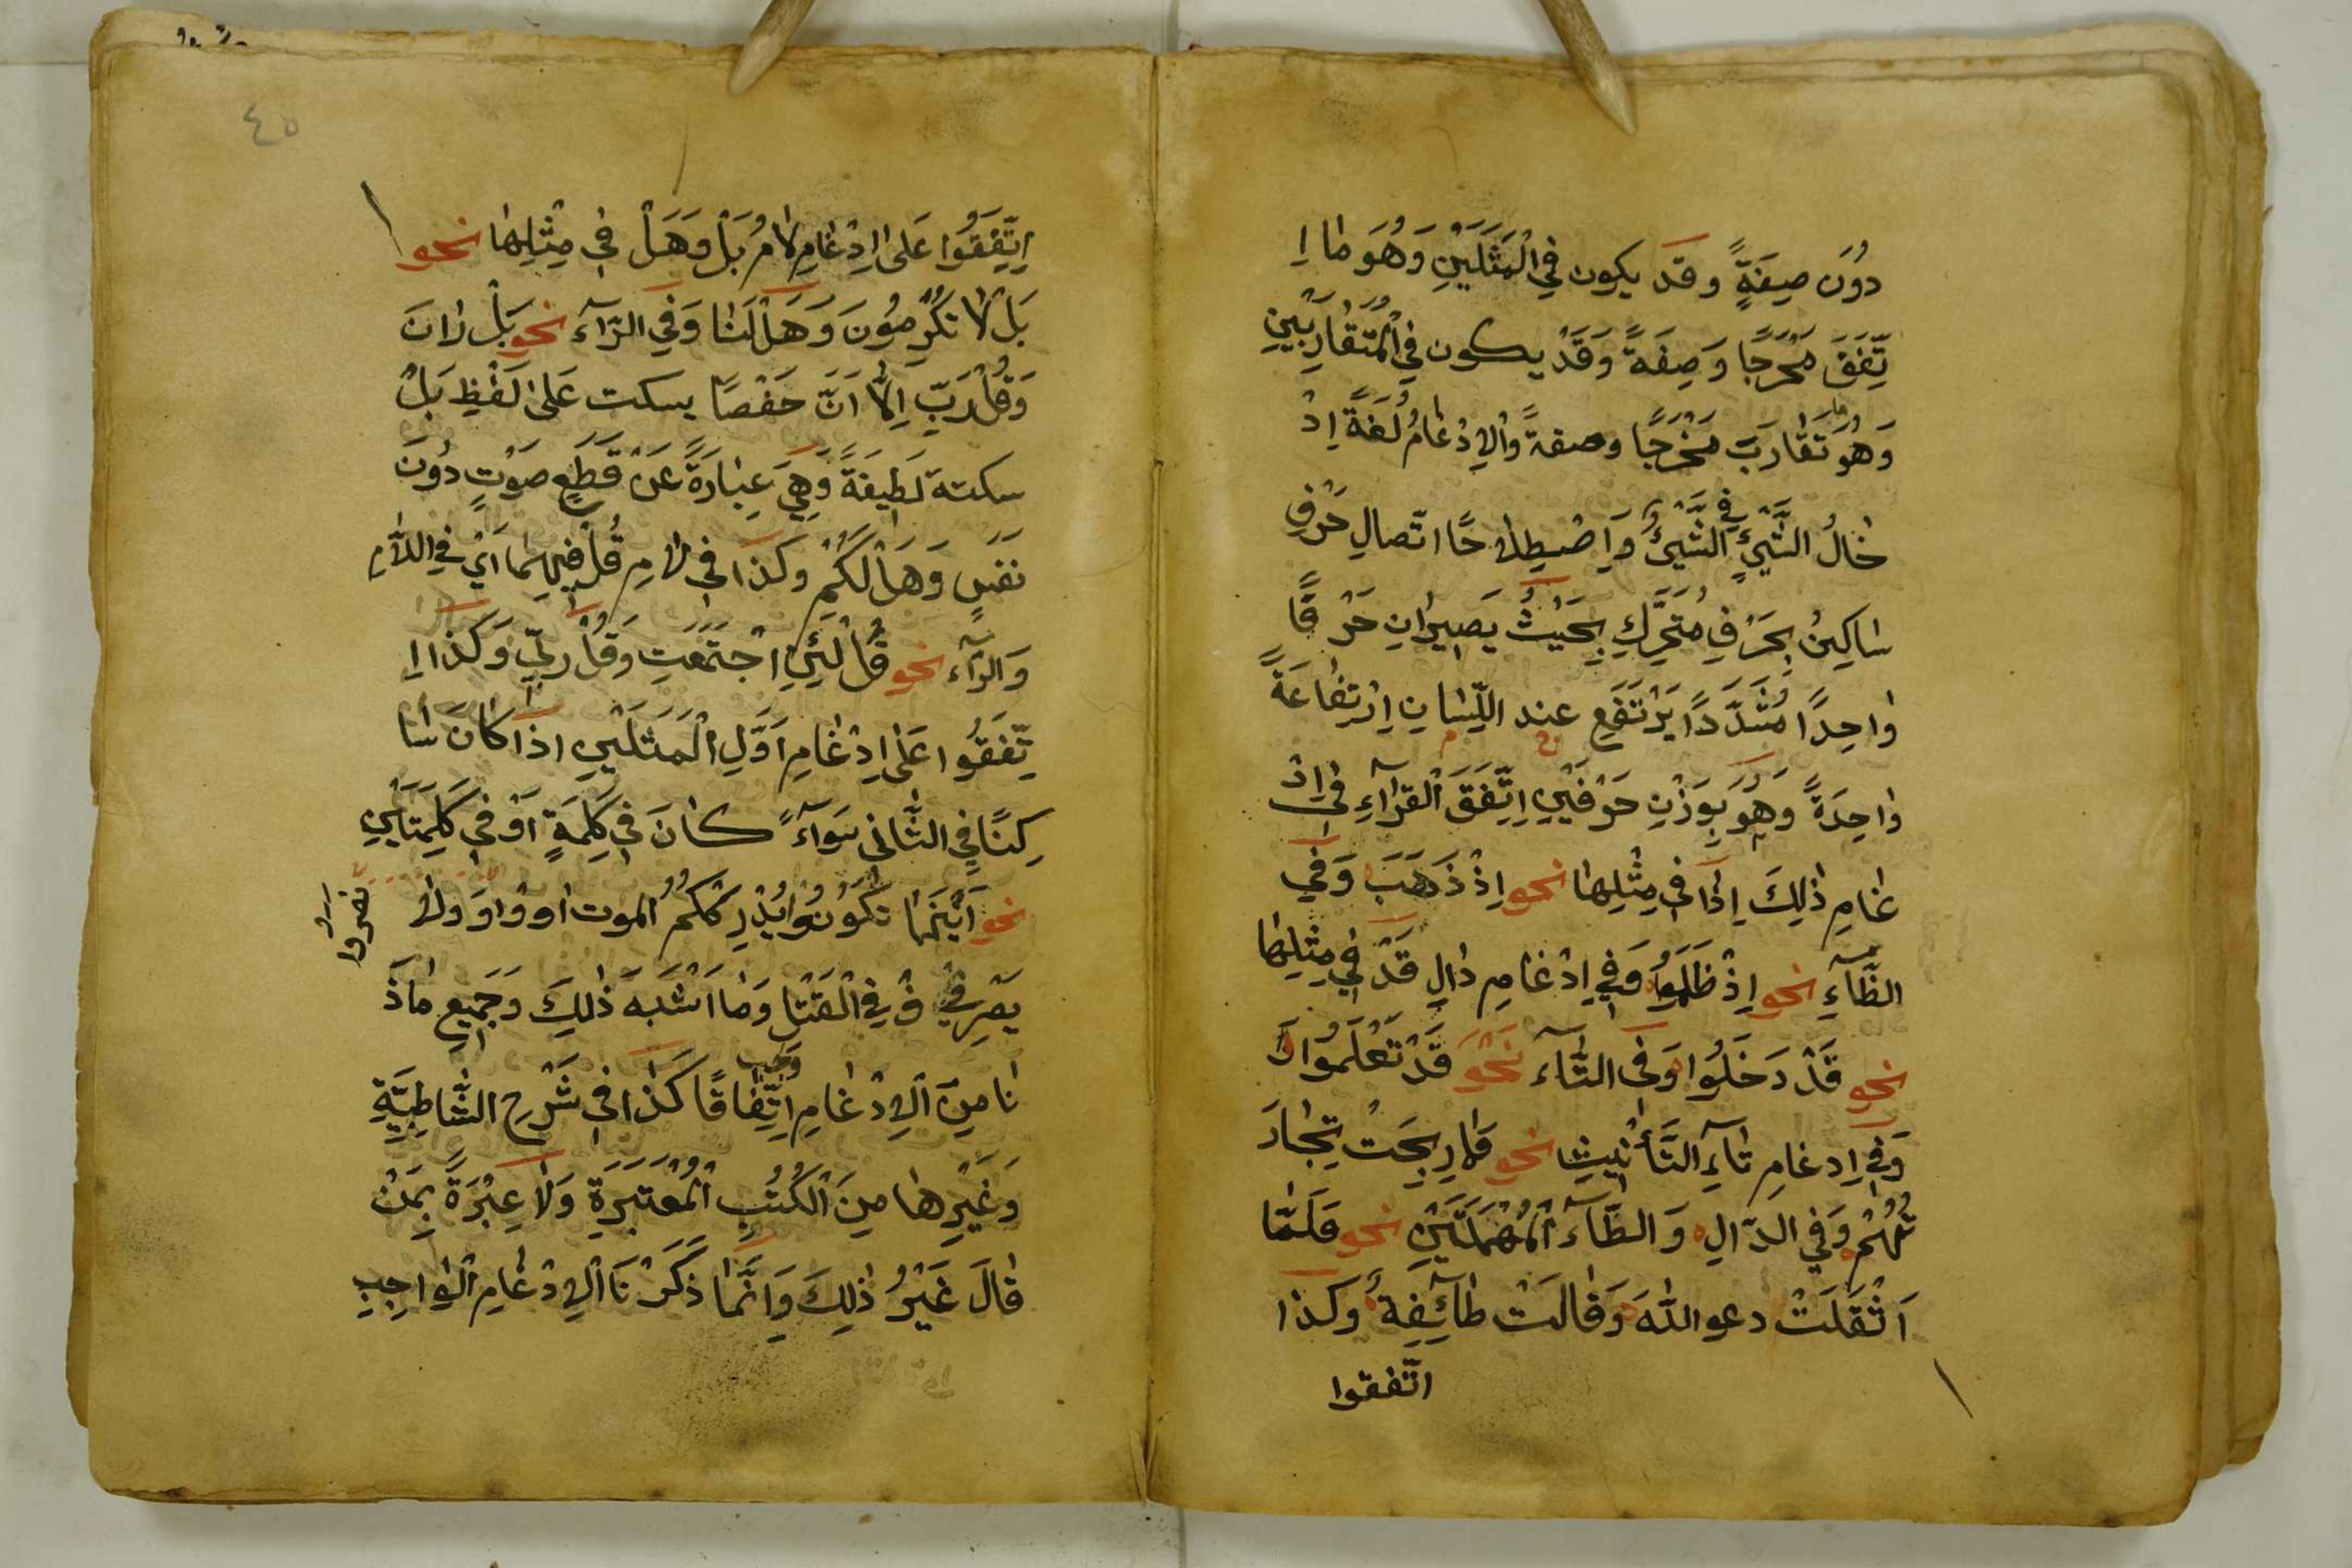 دُونَ صِفَةٍ وقد يكون فِي الْمَثَلَيْنِ وَهُوَ مَا اِ
تَّفَقَ مَخْرَجًا وَصِفَةً وَقَدْ يكون فِي الْمُتَقَارِبَيْنِ
وَهُوَ مَا تَقَارَبَ مَخْرَجًا وصفةً والاِدْغَامُ لُغَةً اِدْ
خَالُ الشَّيْءِ فِي الشَّيْءِ وَاِصْطِلَاحًا اتّصالِ حَرْفِ
سَاكِنٍ بِحَرْفٍ مُتَحَرِّكٍ بِحَيْثُ يَصِيرَانِ حَرْفًا
وَاحِدًا مُشَدَّدًا يَرْتَفِعُ عند اللِّسَانِ اِرْتِفَاعَةً
وَاحِدَةً وَهُوَ بِوَزْنِ حَرْفَيْنِ اِتَّفَقَ الْقُرَّآءِ فِي اِدْ
غَامِ ذٰلِكَ اِذَا فِي مِثْلِهَا نحو اِذْ ذَهَبَ وَفِي
الظَّآءِ نحو اِذْ ظَلَمُوا وَفِي اِدْغَامِ دَالِ قَدْ فِي مِثْلِهَا
نحو قَدْ دَخَلُوا وَفِي التَّآءِ نَحْوَ قَدْ تَعْلَمُوا
وَفِي اِدغامِ تَآءِ التَّأْنِيثِ نحو فَمَا رَبِحَتْ تِجَارَ
تُهُمْ وَفِي الدّالِ وَالطَّآءِ الْمُهْمَلَتَيْنِ نحو فَلَمَّا
اَثْقَلَتْ دعو اللّٰهَ وَقَالَتْ طَآئِفَةٌ وَكذا
اتّفقوا
٤٥
اِتَّفَقُوا عَلٰى اِدْغَامِ لَامُ بَلْ وَهَلْ فِي مِثْلِهَا نحو
بَلْ لَا تُكْرِمُونَ وَهَلْ لَنَا وَفِي الرَّآء نحو بَلْ رَانَ
وَقُلْ رَبِّ اِلَّا اَنَّ حَفْصًا يسكت عَلٰى لَفْظِ بَلْ
سكتة لَطِيفَةً وَهِيَ عِبَارَةٌ عَنْ قَطْعِ صَوْتٍ دُونَ
نَفَسٍ وَهَلْ لَكُمْ وَكَذَا فِي لَامِ قُلْ فِيهِمَا اَيْ فِي اللَّامِ
وَالرّآء نحو قُلْ لَئِنِ اجْتَمَعَتِ وَقُلْ رَبِّي وَكَذَا اِ
تَّفَقُوا عَلٰى اِدْغَامِ اَوَّلِ الْمَثَلَيْنِ اِذَا كَانَ سَا
كِنًا فِي الثَّانِي سَوَآءً كَانَ فِي كَلِمَةٍ اَوْ فِي كَلِمَتَيْنِ
نحو اَيْنَمَا تَكُونُوا يُدْرِكْكُمُ الموت اوْ وَاوَ وَلَا
يُسْرِفْ فِي الْقَتْلِ وَمَا اَشْبَهَ ذٰلِكَ وَجَمِيعِ مَاذَ
نَا مِنَ الاِدْغَامِ وَجب اِتِّفَاقًا كَذَا فِي شَرْحِ الشَّاطِبِيَّةِ
وَغَيْرِهَا مِنَ الْكُتُبِ الْمُعْتَبَرَةِ وَلَا عِبْرَةَ بِمَنْ
قَالَ غَيْرُ ذٰلِكَ وَاِنَّمَا ذَكَرْنَا الاِدْغَامِ الْوَاجِبِ